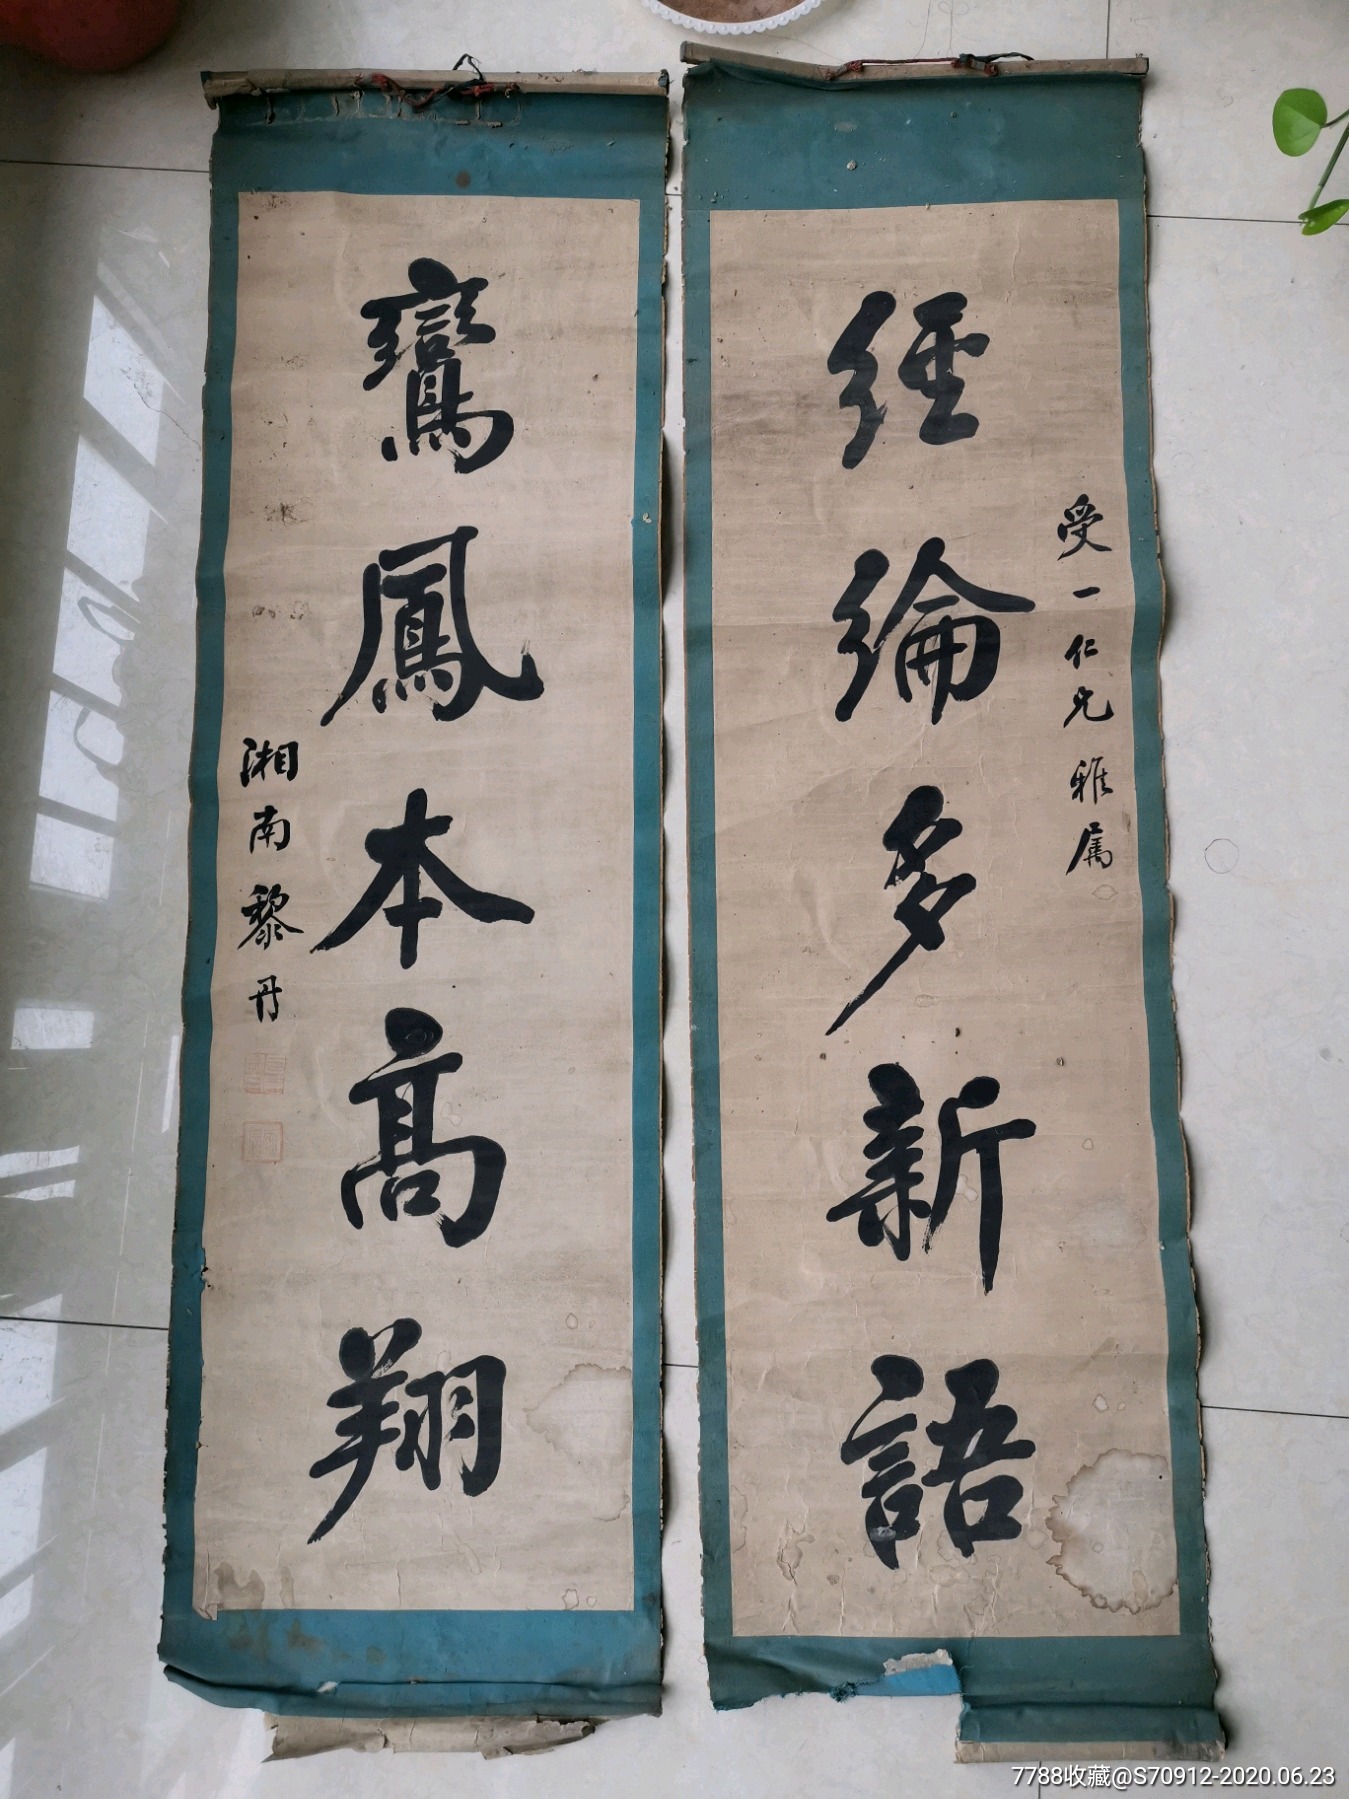 受一仁兄雅属
經綸多新語
鸞鳳本高翔
湘南黎丹
7788收藏@S70912-2020.06.23